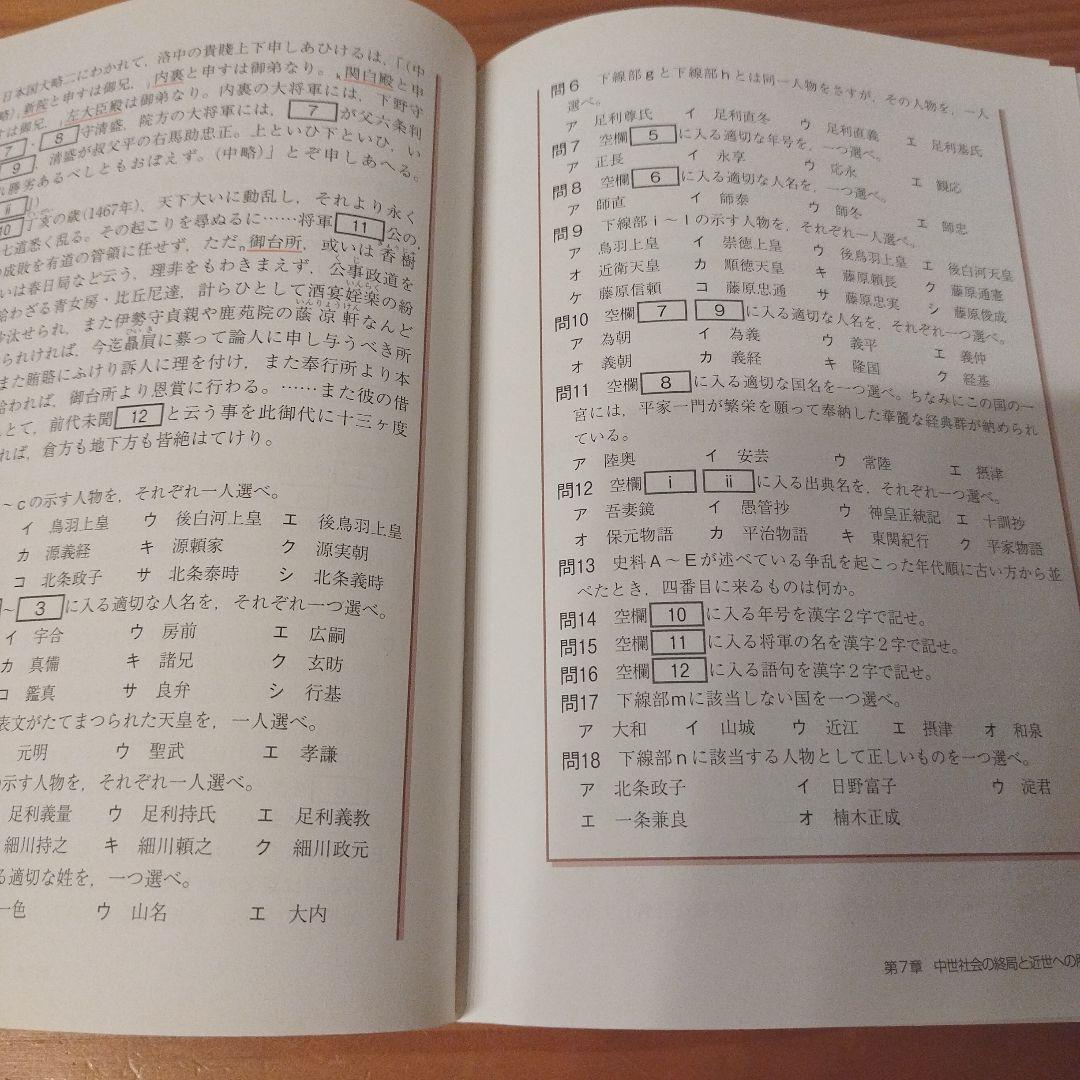 日本国大略二にわかれて，洛中の貴賤上下申しあひけるは，「（中
略），新院と申すは御兄，内裏と申すは御弟なり。関白殿と申
すは御兄，左大臣殿は御弟なり。内裏の大将軍には，下野守
7・8守清盛，院方の大将軍には，7が父六条判
9，清盛が叔父平の右馬助忠正。上といひ下といひ，い
れ勝劣あるべしともおぼえず。（中略）」とぞ申しあへる。
ii』）
10丁亥の歳（1467年），天下大いに動乱し，それより永く
七道悉く乱る。その起こりを尋ぬるに……将軍11公の，
の成敗を有道の管領に任せず，ただ，n御台所，或いは香樹
いは春日局など云う，理非をもわきまえず，公事政道を
給わざる青女房・比丘尼達，計らひとして酒宴婬楽の紛
沙汰せられ，また伊勢守貞親や鹿苑院の蔭凉軒なんど
られければ，今迄贔屓に募って論人に申し与うべき所
また賄賂にふけり訴人に理を付け，また奉行所より本
給われば，御台所より恩賞に行わる。……また彼の借
とて，前代未聞12と云う事を此御代に十三ヶ度
れば，倉方も地下方も皆絶はてけり。
～cの示す人物を，それぞれ一人選べ。
イ 鳥羽上皇 ウ 後白河上皇 エ 後鳥羽上皇
カ 源義経 キ 源頼家 ク 源実朝
コ 北条政子 サ 北条泰時 シ 北条義時
～3に入る適切な人名を，それぞれ一つ選べ。
イ 宇合 ウ 房前 エ 広嗣
カ 真備 キ 諸兄 ク 玄昉
コ 鑑真 サ 良弁 シ 行基
表文がたてまつられた天皇を，一人選べ。
元明 ウ 聖武 エ 孝謙
の示す人物を，それぞれ一人選べ。
足利義量 ウ 足利持氏 エ 足利義教
細川持之 キ 細川頼之 ク 細川政元
る適切な姓を，一つ選べ。
一色 ウ 山名 エ 大内
問6 下線部gと下線部hとは同一人物をさすが，その人物を，一人
選べ。
ア 足利尊氏 イ 足利直冬 ウ 足利直義 エ 足利基氏
問7 空欄5に入る適切な年号を，一つ選べ。
ア 正長 イ 永享 ウ 応永 エ 観応
問8 空欄6に入る適切な人名を，一つ選べ。
ア 師直 イ 師泰 ウ 師冬 エ 師忠
問9 下線部i～lの示す人物を，それぞれ一人選べ。
ア 鳥羽上皇 イ 崇徳上皇 ウ 後鳥羽上皇 エ 後白河天皇
オ 近衛天皇 カ 順徳天皇 キ 藤原頼長 ク 藤原通憲
ケ 藤原信頼 コ 藤原忠通 サ 藤原忠実 シ 藤原俊成
問10 空欄7 9に入る適切な人名を，それぞれ一つ選べ。
ア 為朝 イ 為義 ウ 義平 エ 義仲
オ 義朝 カ 義経 キ 隆国 ク 経基
問11 空欄8に入る適切な国名を一つ選べ。ちなみにこの国の一
宮には，平家一門が繁栄を願って奉納した華麗な経典群が納められ
ている。
ア 陸奥 イ 安芸 ウ 常陸 エ 摂津
問12 空欄i iiに入る出典名を，それぞれ一つ選べ。
ア 吾妻鏡 イ 愚管抄 ウ 神皇正統記 エ 十訓抄
オ 保元物語 カ 平治物語 キ 東関紀行 ク 平家物語
問13 史料A～Eが述べている争乱を起こった年代順に古い方から並
べたとき，四番目に来るものは何か。
問14 空欄10に入る年号を漢字2字で記せ。
問15 空欄11に入る将軍の名を漢字2字で記せ。
問16 空欄12に入る語句を漢字2字で記せ。
問17 下線部mに該当しない国を一つ選べ。
ア 大和 イ 山城 ウ 近江 エ 摂津 オ 和泉
問18 下線部nに該当する人物として正しいものを一つ選べ。
ア 北条政子 イ 日野富子 ウ 淀君
エ 一条兼良 オ 楠木正成
第7章 中世社会の終局と近世への